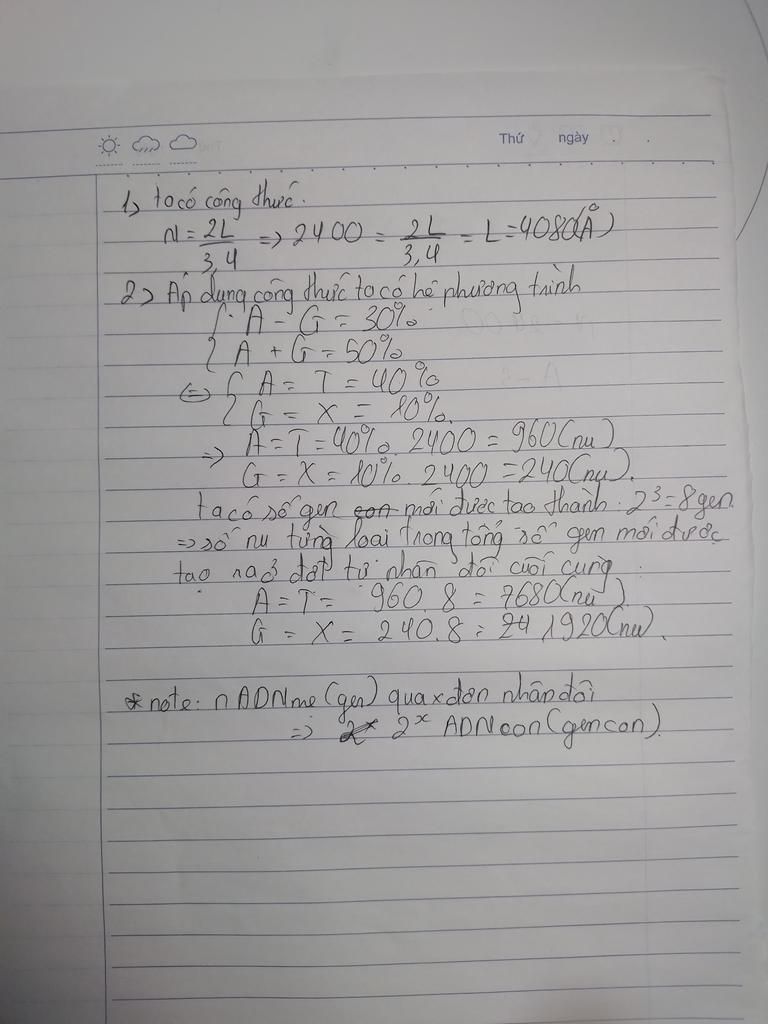 Thứ ngày . .
1, ta có công thức.
N = 2L/3,4 => 2400 = 2L/3,4 = L = 4080(Å)
2, Áp dụng công thức ta có hê phương trình
{ A - G = 30%
{ A + G = 50%
<=> { A = T = 40%
{ G = X = 10%.
=> A = T = 40%. 2400 = 960(nu)
G = X = 10%. 2400 = 240(nu).
ta có số gen con mới được tạo thành. 2³ = 8 gen.
=> số nu từng loại trong tổng số gen mới được
tạo ra ở đợt tự nhân đôi cuối cùng :
A = T = 960.8 = 7680(nu).
G = X = 240.8 = 24 1920(nu).
* note: n ADN mẹ (gen) qua x đơn nhân đôi
=> 2ˣ 2ˣ ADN con (gen con)